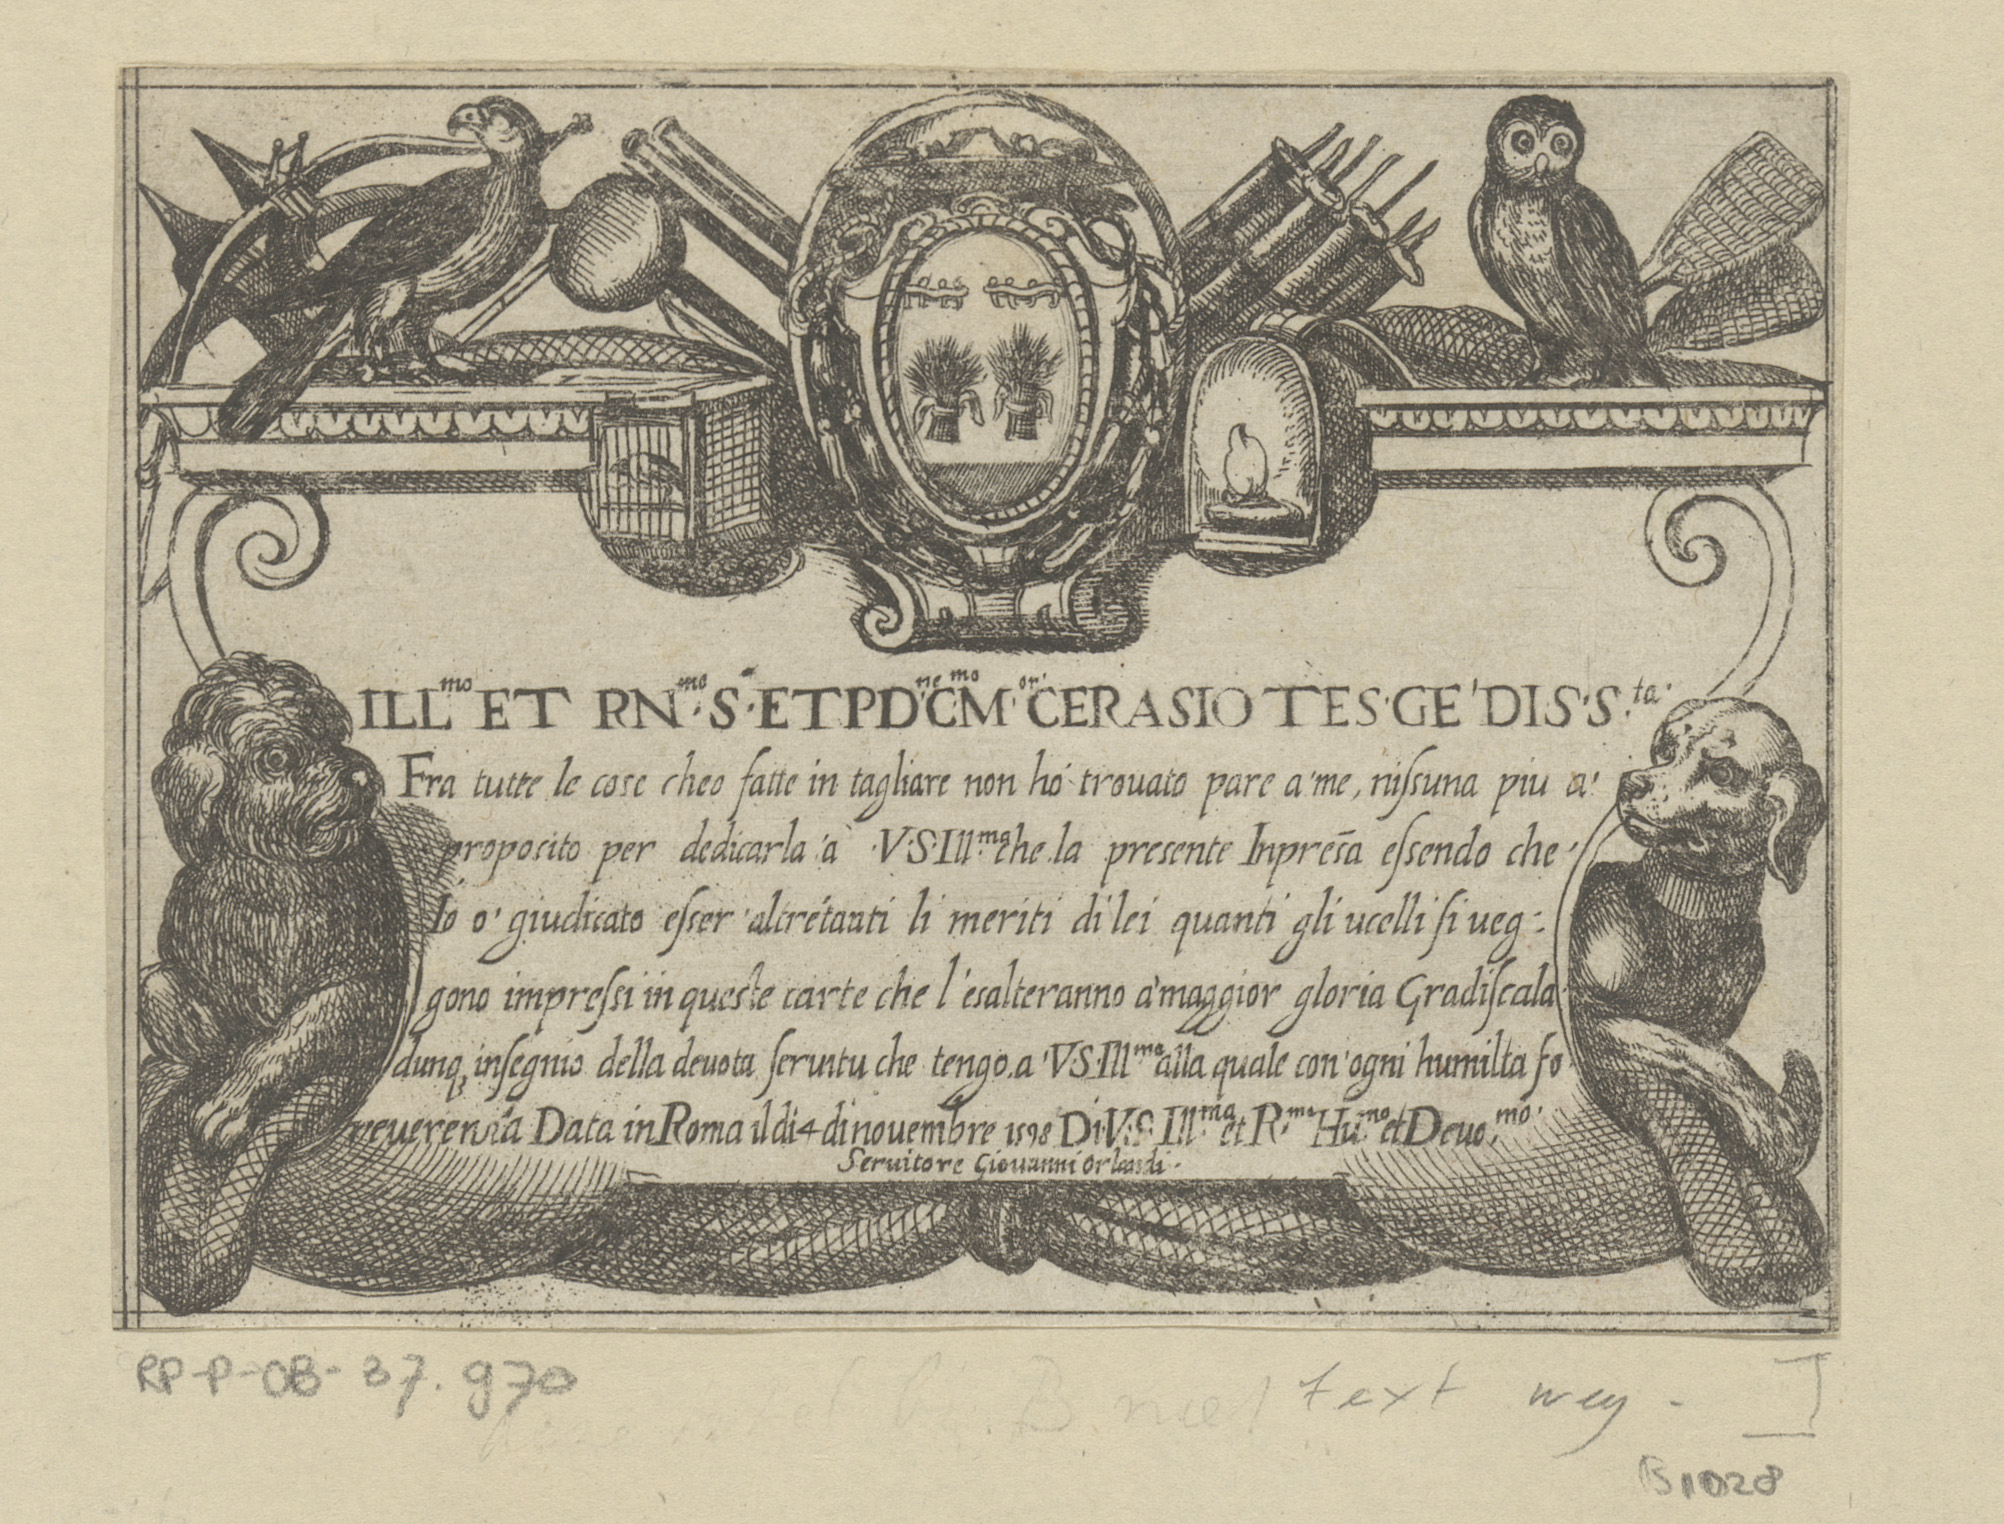 ILL^mo ET RN^mo·S·ET PD^ne C^mo M^or CERASIO TES·GE'DIS·S·^ta·
Fra tutte le cose cheo fatte in tagliare non hó trouato pare a'me, niſsuna piu a'
proposito per dedicarla 'a V·S·Ill^ma che la presente Inpresā eſsendo che·
Io o' giudicato eſser 'altretanti li meriti di lei quanti gli ucelli ſi ueg:
gono impreſsi in queste carte che l'esalteranno a'maggior gloria Gradiſcala
dunq insegnio della deuota ſeruitu che tengo.a 'V·S·Ill^ma alla quale con'ogni humilta fo
reuerenzia Data in Roma il di 4 di nouembre 1598 Di V·S·Ill^ma et R^ma Hu^mo et Deuo^mo·
Seruitore Giouanni Orlandi·
RP-P-OB-37.970
B. niet text weg -
B1028